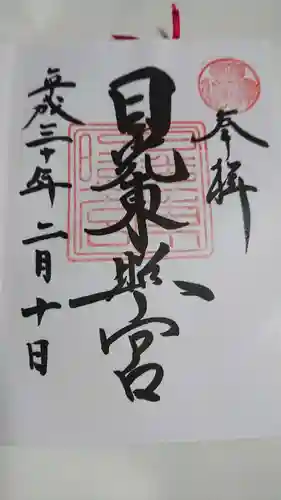 奉拝
日光東照宮
平成三十年二月十日